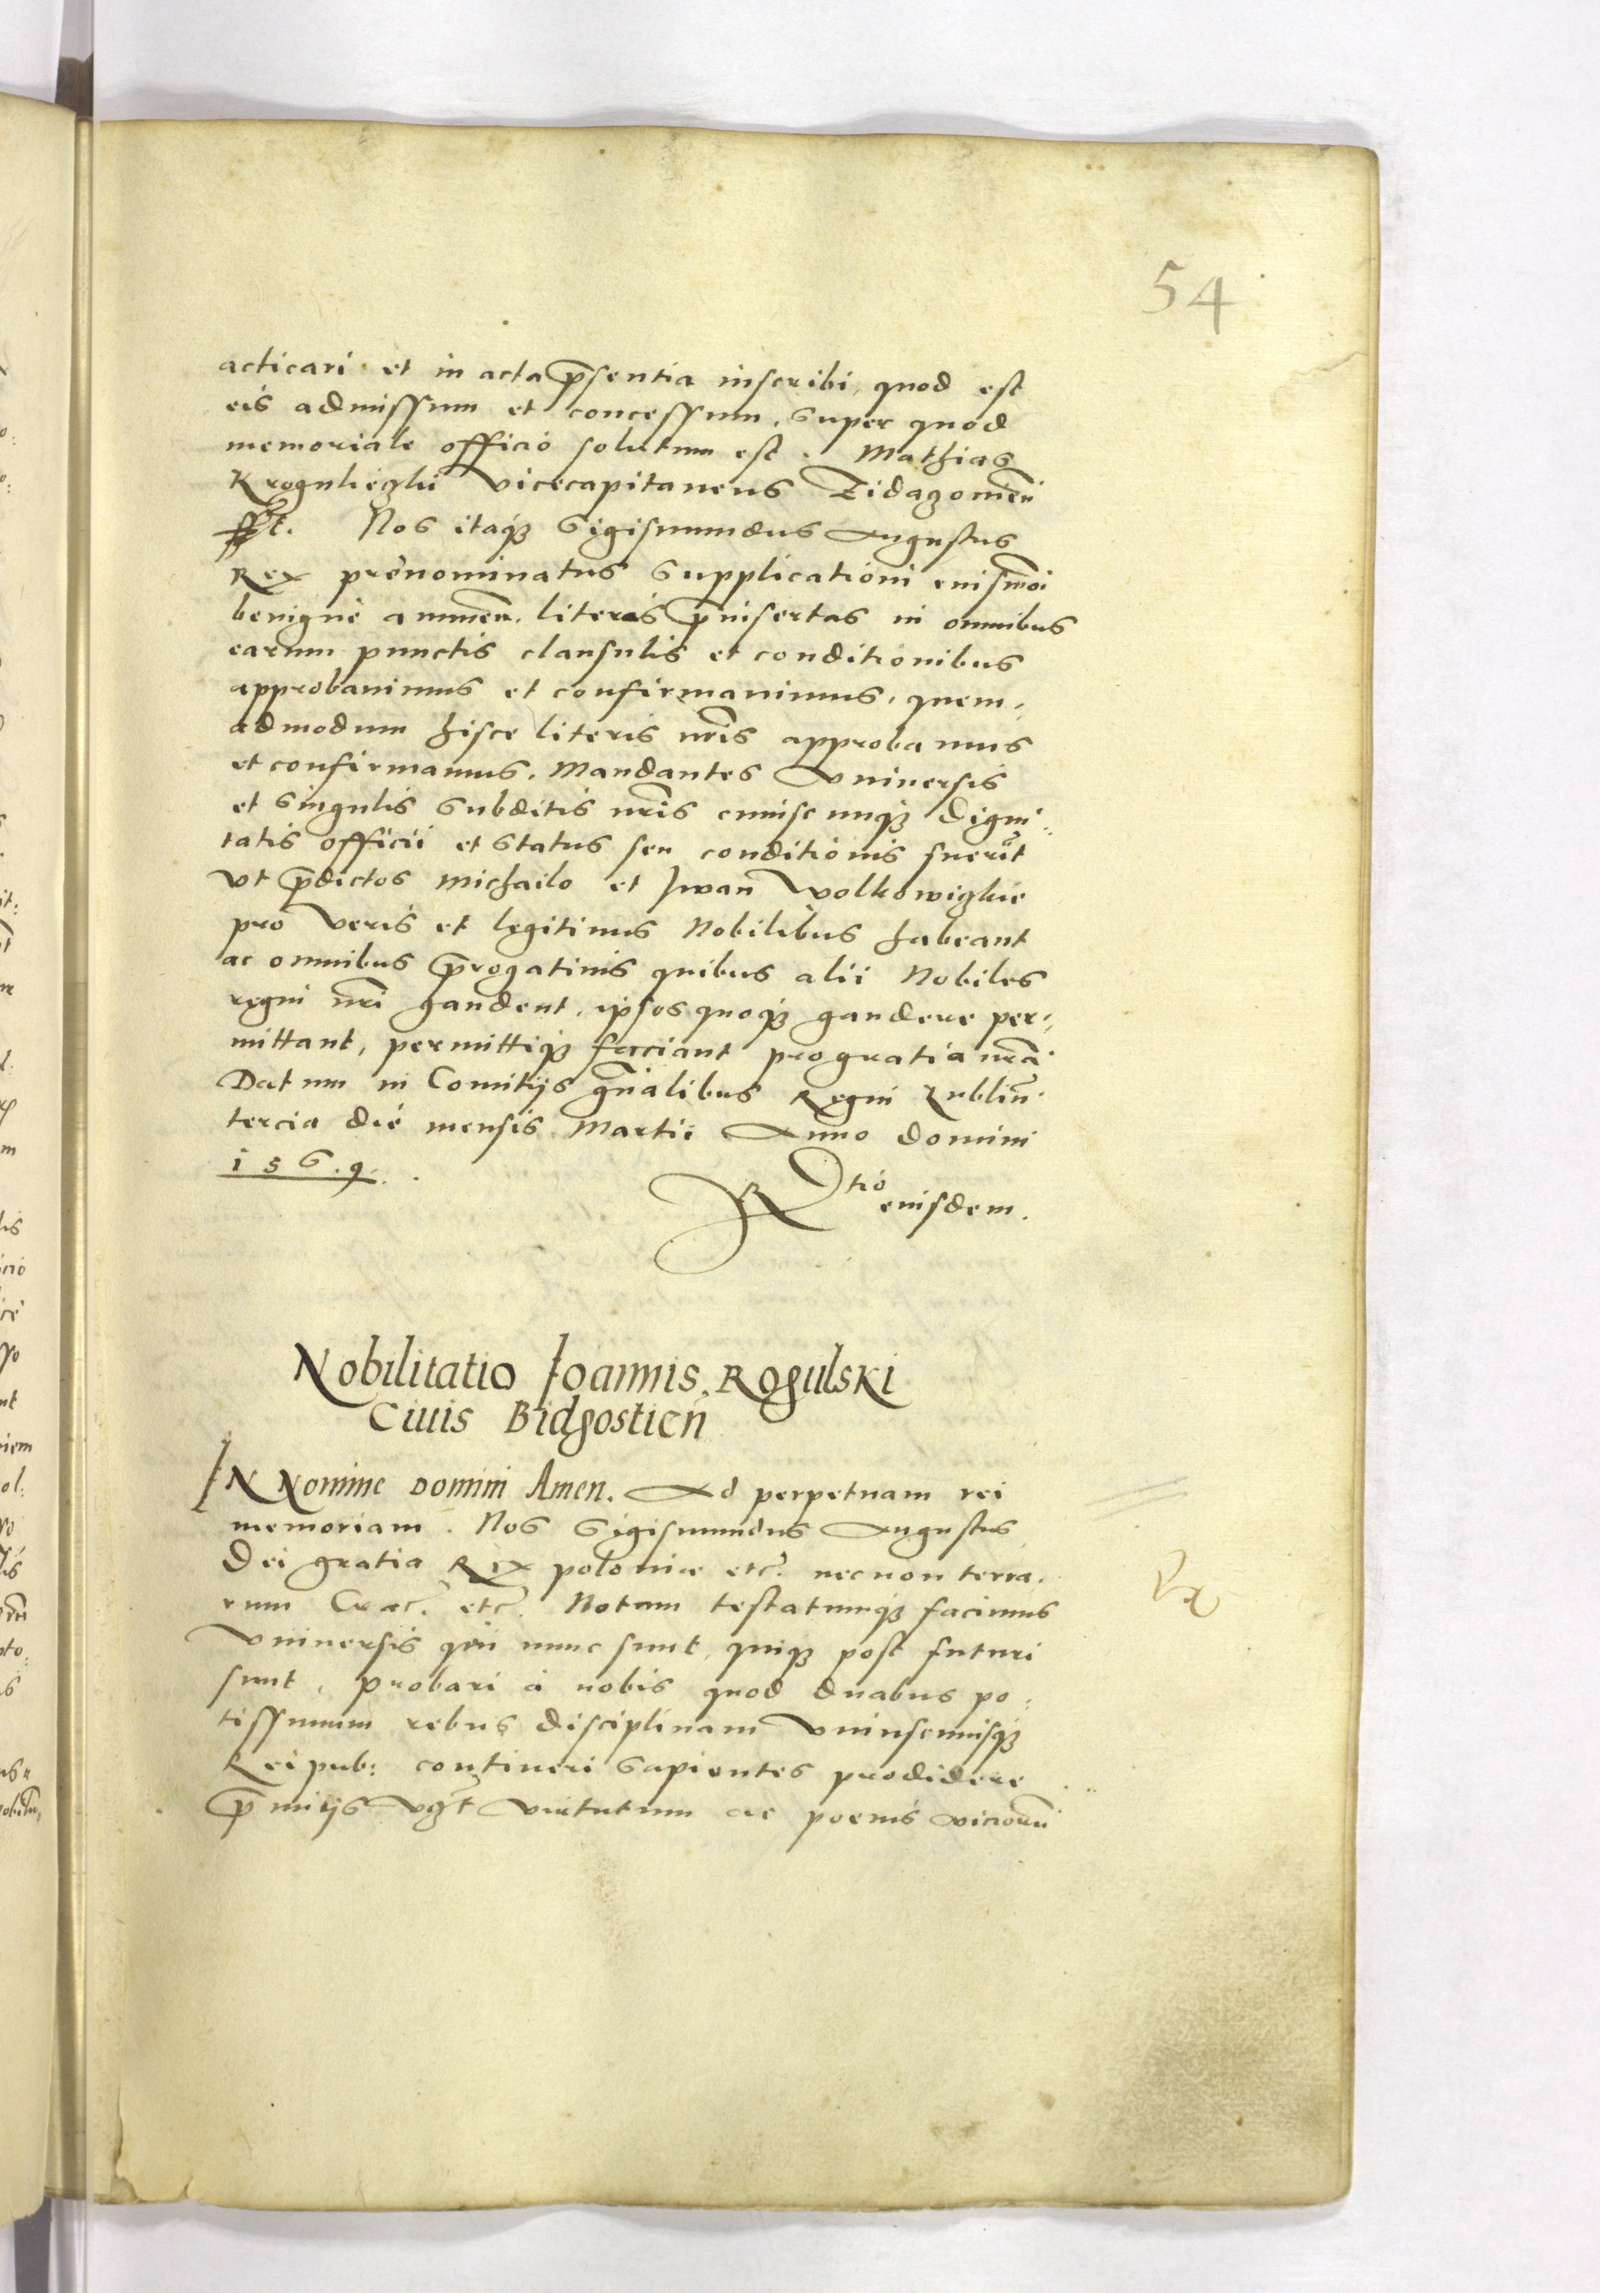 54
acticari et in acta p̄sentia inscribi, quod est
eis admissum et concessum, super quod
memoriale officio solutum est. Mathias
Vicecapitaneus
Nos itaq3 Sigismundus Augustus
Rex prenominatus supplicationi euismoi
benigne annuen. literas p̄insertas in omnibus
earum punctis clausulis et conditionibus
approbauimus et confirmauimus, quem-
admodum hisce literis nr̄is approbamus
et confirmamus. Mandantes Vniuersis
et singulis subditis nr̄is cuiuscunq3 digni-
tatis officii et status seu conditionis fuerīt
Vt p̄dictos Michailo et Iwan Wolkowiczkie
pro veris et legitimis Nobilibus habeant
ac omnibus p̄rogatiuis quibus alii Nobiles
regni nr̄i gaudent, ipsos quoq3 gaudere per-
mittant, permittiq3 faciant pro gratia nr̄a.
Datum in Comitijs gn̄alibus Regni Lublin̄.
tercia die mensis Martii Anno domini
1569.
Rtio
eiusdem.
Nobilitatio Ioannis Rogulski
Ciuis Bidgostien̄
IN Nomine Domini Amen. Ad perpetuam rei
memoriam. Nos Sigismundus Augustus
Dei gratia Rex polonie etc. necnon terra-
rum Crac. etc. Notum testatumq3 facimus
Vniuersis qui nunc sunt, quiq3 post futuri
sunt, probari à nobis quod duabus po-
tissimum rebus disciplinam Vniuscuiusq3
Reipub: contineri sapientes prodidere
p̄mijs vz̄t virtutum ac poenis vicioru̅